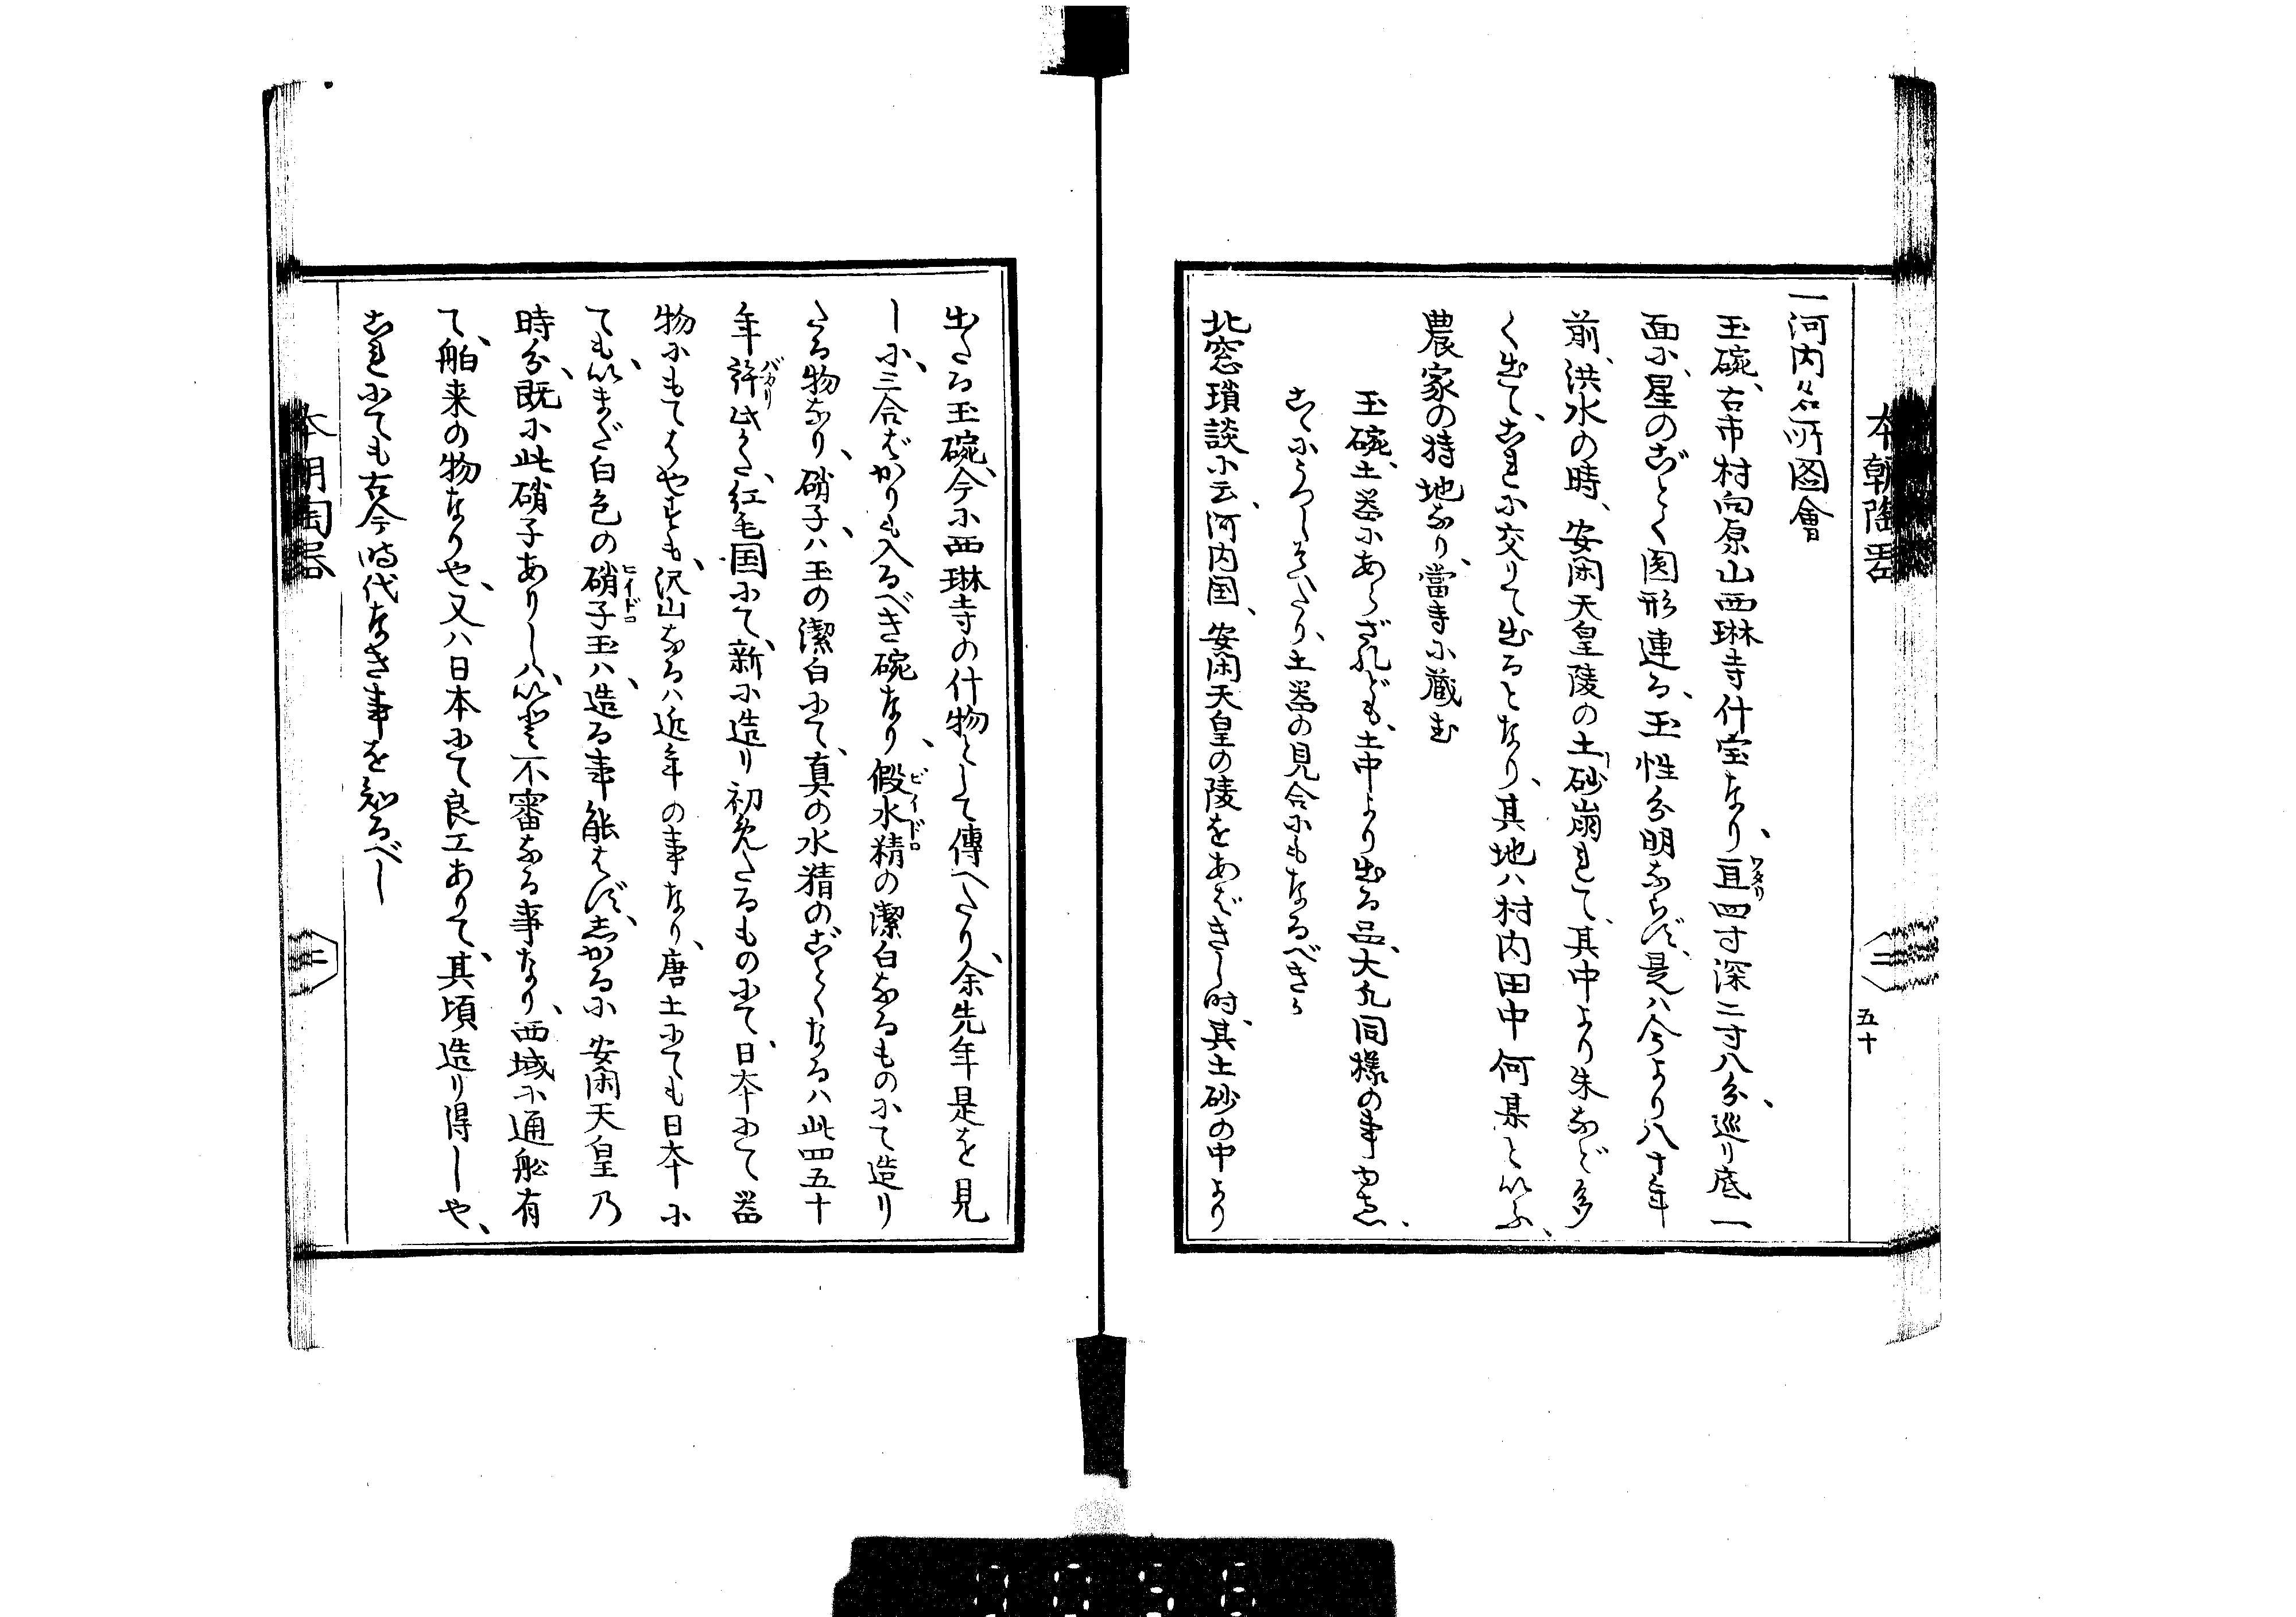 本朝陶器
二
五十
一河内名所図會
玉碗、古市村向原山西琳寺什宝なり、亘ワタリ四寸深二寸八分、巡り底一
面に、星のごとく圓形連る、玉性分明ならず、是ハ今より八十年
前、洪水の時、安閑天皇陵の土砂崩れて、其中より朱など多
く出て、これに交りて出るとなり、其地ハ村内田中何某といふ、
農家の持地なり、當寺に蔵む
玉碗、土器にあらざれども、土中より出る品、大凡同様の事ゆゑ、
こゝにうつしそへたり、土器の見合にもなるべきか
北窓瑣談に云、河内国、安閑天皇の陵をあばきし時、其土砂の中より
出たる玉碗、今に西琳寺の什物として傳へたり、余先年是を見
しに、三合ばかりも入るべき碗なり、假水精ビイドロの潔白なるものにて造り
たる物なり、硝子ハ玉の潔白にて、真の水精のごとくなるハ此四五十
年許バカリ此かた、紅毛国にて、新に造り初免たるものにて、日本にて器
物にもてはやせども、沢山なるハ近年の事なり、唐土にても日本に
ても、いまだ白色の硝子ヒイドロ玉ハ、造る事能はず、志かるに安閑天皇乃
時分、既に此硝子ありしハ、いと不審なる事なり、西域に通舩有
て、舶来の物なりや、又ハ日本にて良工ありて、其頃造り得しや、
これにても古今時代なき事を知るべし
本朝陶器
二